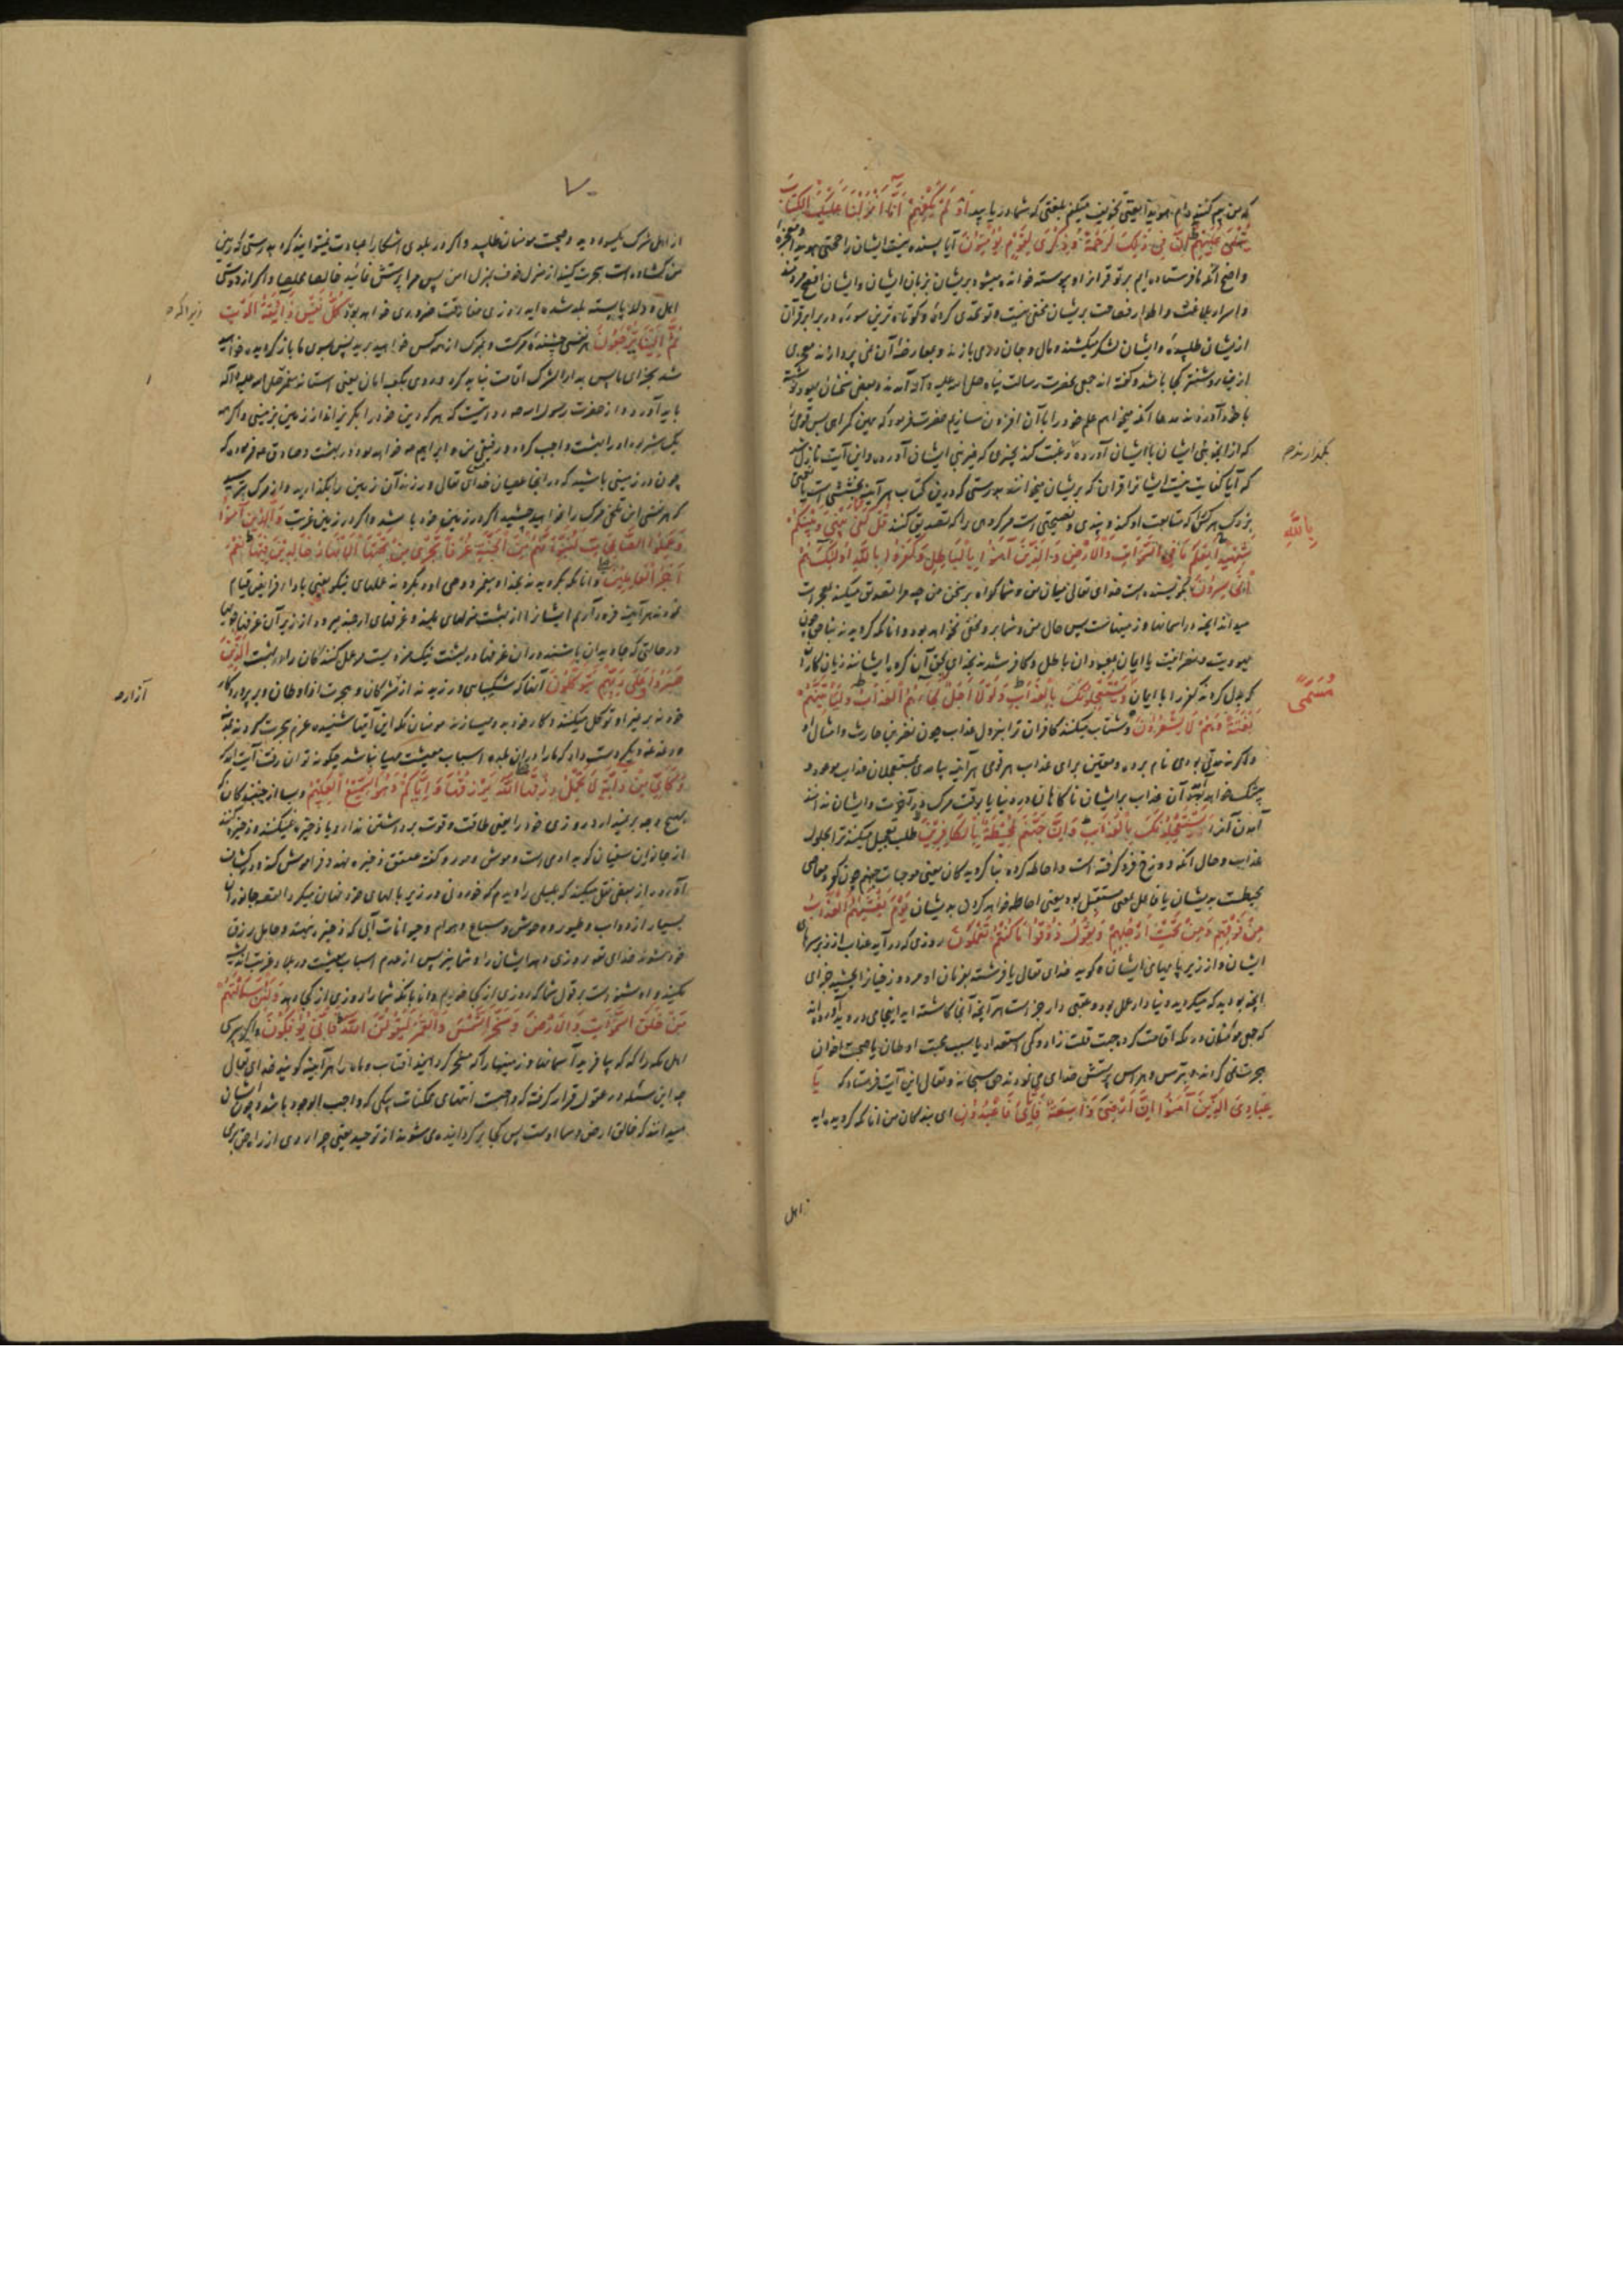 که من بیم کننده‌ام هویدا یعنی تخویف میکنم بلغتی که شما دریابید أَوَلَمْ يَكْفِهِمْ أَنَّا أَنْزَلْنَا عَلَيْكَ الْكِتَابَ
يُتْلَى عَلَيْهِمْ إِنَّ فِي ذَلِكَ لَرَحْمَةً وَذِكْرَى لِقَوْمٍ يُؤْمِنُونَ آیا بسنده نیست ایشان را حجتی هویدا و معجزهٔ
واضح آنکه ما فرستاده‌ایم بر تو قرآن را و پیوسته خوانده میشود بریشان بزبان ایشان و ایشان افصح مردمند
و اسرار بلاغت و اطوار فصاحت بریشان مخفی نیست و تو تحدی کردهٔ و کوتاه‌ترین سورهٔ در برابر قرآن
ازیشان طلبیدهٔ و ایشان لشکر میکشند و مال و جان در می‌بازند و بمعارضهٔ آن نمی‌پردازند معجزی
ازین روشنتر کجا باشد و گفته‌اند جمعی بحضرت رسالت پناه صلی الله علیه و آله آمدند و بعضی سخنان یهود نوشته
با خود آوردند
که از آنچه نبی ایشان با ایشان آورده رغبت کنند بچیزی که غیر نبی ایشان آورده و این آیت نازل شد
که آیا کفایت نیست ایشانرا قرآن که بریشان میخوانند بدرستی که درین کتاب هر آینه بخششی است یا نعمتی
بزرگ هر کس را که متابعت او کند و پندی و نصیحتی است مر گروهی را که تصدیق کنند قُلْ كَفَى بَيْنِي وَبَيْنَكُمْ
بِاللَّهِ
شَهِيدًا يَعْلَمُ مَا فِي السَّمَوَاتِ وَالْأَرْضِ وَالَّذِينَ آمَنُوا بِالْبَاطِلِ وَكَفَرُوا بِاللَّهِ أُولَئِكَ هُمُ
الْخَاسِرُونَ بگو بسنده است خدای تعالی میان من و شما گواه بر سخن من چه مرا تصدیق میکند بمعجزات
میداند آنچه در آسمانها و زمینهاست پس حال من و شما برو مخفی نخواهد بود و آنانکه گرویدند بناحق چون
یهودیت و نصرانیت یا ایمان بمعبودان باطل و کافر شدند بخدای بحق آن گروه ایشانند زیان‌کاران
که بدل کردند کفر را با ایمان وَيَسْتَعْجِلُونَكَ بِالْعَذَابِ وَلَوْلَا أَجَلٌ لَجَاءَهُمُ الْعَذَابُ وَلَيَأْتِيَنَّهُمْ
مُسَمًّى
بَغْتَةً وَهُمْ لَا يَشْعُرُونَ و شتاب میکنند کافران ترا بنزول عذاب چون نضر بن حارث و امثال او
و اگر نه مدتی بودی نام برده و معین برای عذاب هر قومی هر آینه بیامدی بمستعجلان عذاب موعود و
بی‌شک خواهد آمد آن عذاب بر ایشان ناگاهان در دنیا یا بوقت مرگ یا در آخرت و ایشان ندانند
آمدن آنرا يَسْتَعْجِلُونَكَ بِالْعَذَابِ وَإِنَّ جَهَنَّمَ لَمُحِيطَةٌ بِالْكَافِرِينَ طلب تعجیل میکنند ترا بحلول
عذاب و حال آنکه دوزخ فرو گرفته است و احاطه کرده بناگرویدگان یعنی موجبات جهنم چون کفر و معاصی
محیطست بدیشان یا فاعل بمعنی مستقبل بود یعنی احاطه خواهد کردن بدیشان يَوْمَ يَغْشَاهُمُ الْعَذَابُ
مِنْ فَوْقِهِمْ وَمِنْ تَحْتِ أَرْجُلِهِمْ وَيَقُولُ ذُوقُوا مَا كُنْتُمْ تَعْمَلُونَ روزی که درآید عذاب از زبر سرهای
ایشان و از زیر پایهای ایشان و گوید خدای تعالی یا فرشته بفرمان او مر دوزخیان را بچشید جزای
آنچه بودید که میکردید و دنیا دار عمل بود و عقبی دار جزاست هر آینه آنجا کاشته‌اید اینجا می‌دروید آورده‌اند
که جمعی مؤمنان در مکه اقامت کرده بجهت قلت زاد و کمی استعداد یا بسبب محبت اوطان یا صحبت اخوان
هجرت نمی‌کردند و بترس و هراس پرستش خدای می‌نمودند حق سبحانه و تعالی این آیت فرستاد که يَا
عِبَادِيَ الَّذِينَ آمَنُوا إِنَّ أَرْضِي وَاسِعَةٌ فَإِيَّايَ فَاعْبُدُونِ ای بندگان من آنانکه گرویده‌اید
از اهل
۷۰
از اهل شرک یکسو روید و صحبت مؤمنان طلبید و اگر در بلدی آشکارا عبادت نتوانید کرد بدرستی که زمین
من گشاده است هجرت کنید از منزل خوف بمنزل امن پس مرا پرستش نمائید خالصا مخلصا و اگر از دوستی
اهل و ولد پابسته بلد شده‌اید روزی مفارقت ضروری خواهد بود كُلُّ نَفْسٍ ذَائِقَةُ الْمَوْتِ
زیرا که
ثُمَّ إِلَيْنَا تُرْجَعُونَ هر نفسی چشندهٔ مرگست و بمرگ از همه کس خواهید برید پس بسوی ما بازگردیده خواهید
شد بجزای ما پس بدار الشرک اقامت نباید کرد و روی
باید آورد و از حضرت رسول الله مرویست که هر که دین خود را بگریزاند از زمین بزمینی و اگر همه
یک شبر بود او را بهشت واجب گردد و رفیق من و ابراهیم خواهد بود در بهشت و صادق فرموده که
چون در زمینی باشید که در آنجا عصیان خدای تعالی ورزند آن زمین را بگذارید و از مرگ مترسید
که هر نفسی این تلخی مرگ را خواهد چشید اگر در زمین خود باشد و اگر در زمین غربت وَالَّذِينَ آمَنُوا
وَعَمِلُوا الصَّالِحَاتِ لَنُبَوِّئَنَّهُمْ مِنَ الْجَنَّةِ غُرَفًا تَجْرِي مِنْ تَحْتِهَا الْأَنْهَارُ خَالِدِينَ فِيهَا نِعْمَ
أَجْرُ الْعَامِلِينَ و آنانکه بگرویدند بخدا و پیغمبر و وحی او و بکردند عملهای نیکو یعنی بادای فرایض قیام
نمودند هر آینه فرود آریم ایشانرا از بهشت منزلهای بلند و غرفهای ارجمند میرود از زیر آن غرفها جویها
در حالتی که جاویدان باشند در آن غرفها در بهشت نیک مزدیست مر عمل کنندگان را در بهشت الَّذِينَ
صَبَرُوا وَعَلَى رَبِّهِمْ يَتَوَكَّلُونَ آنانکه شکیبایی ورزیدند از مشرکان و هجرت از اوطان و بر پروردگار
آزار
خود نه بر غیر او توکل میکنند و کار خود بدو میسازند مؤمنان مکه این آیتها شنیده عزم هجرت کردند بمدینه
و دغدغه دست داد که ما را در آن بلده اسباب معیشت مهیا نباشد چگونه توان رفت آیت آمد که
وَكَأَيِّنْ مِنْ دَابَّةٍ لَا تَحْمِلُ رِزْقَهَا اللَّهُ يَرْزُقُهَا وَإِيَّاكُمْ وَهُوَ السَّمِيعُ الْعَلِيمُ و بسا از جنبندگان که
بهیچ وجه برنمیدارد روزی خود را یعنی طاقت و قوت برداشتن ندارد یا ذخیره نمیکنند و ذخیره کننده
از جانوران سفیان گوید آدمی است و موش و مور و گفته عقعق ذخیره نهد و فراموش کند و در کشاف
آورده از بعضی نقل میکند که بلبلی را دیدم که خوردنی در زیر بالهای خود نهان میکرد القصه جانوران
بسیار از دواب و طیور و وحوش و سباع و هوام و حیوانات آبی که ذخیره ننهند و حامل رزق
خود نشوند خدای تعالی روزی دهد ایشان را و شما نیز پس از عدم اسباب معیشت در بلاد غربت اندیشه
مکنید و او شنواست بقول شما که روزی از کجا خوریم و داناست بآنکه شما را روزی از کجا دهد وَلَئِنْ سَأَلْتَهُمْ
مَنْ خَلَقَ السَّمَوَاتِ وَالْأَرْضَ وَسَخَّرَ الشَّمْسَ وَالْقَمَرَ لَيَقُولُنَّ اللَّهُ فَأَنَّى يُؤْفَكُونَ و اگر پرسی
اهل مکه را که که بیافرید آسمانها و زمینها را و که مسخر گردانید آفتاب و ماه را هر آینه گویند خدای تعالی
چه این مسئله در عقول قرار گرفته که واجبست انتهای ممکنات بیکی که واجب الوجود باشد و چون ایشان
میدانند که خالق ارض و سما اوست پس کجا برگردانیده می‌شوند از توحید یعنی چرا روی از راه حق